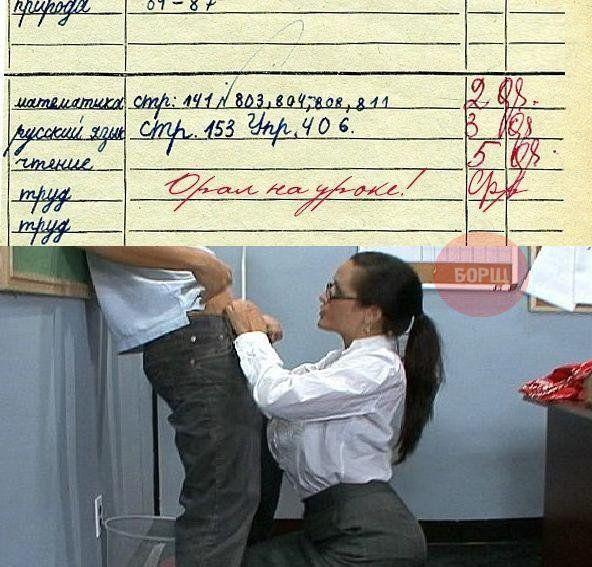 природа 69-87
математика стр: 141 № 803, 804, 808, 811 2
русский язык стр. 153 Упр. 406. 3
чтение 5
труд Орал на уроке!
труд
БОРЩ